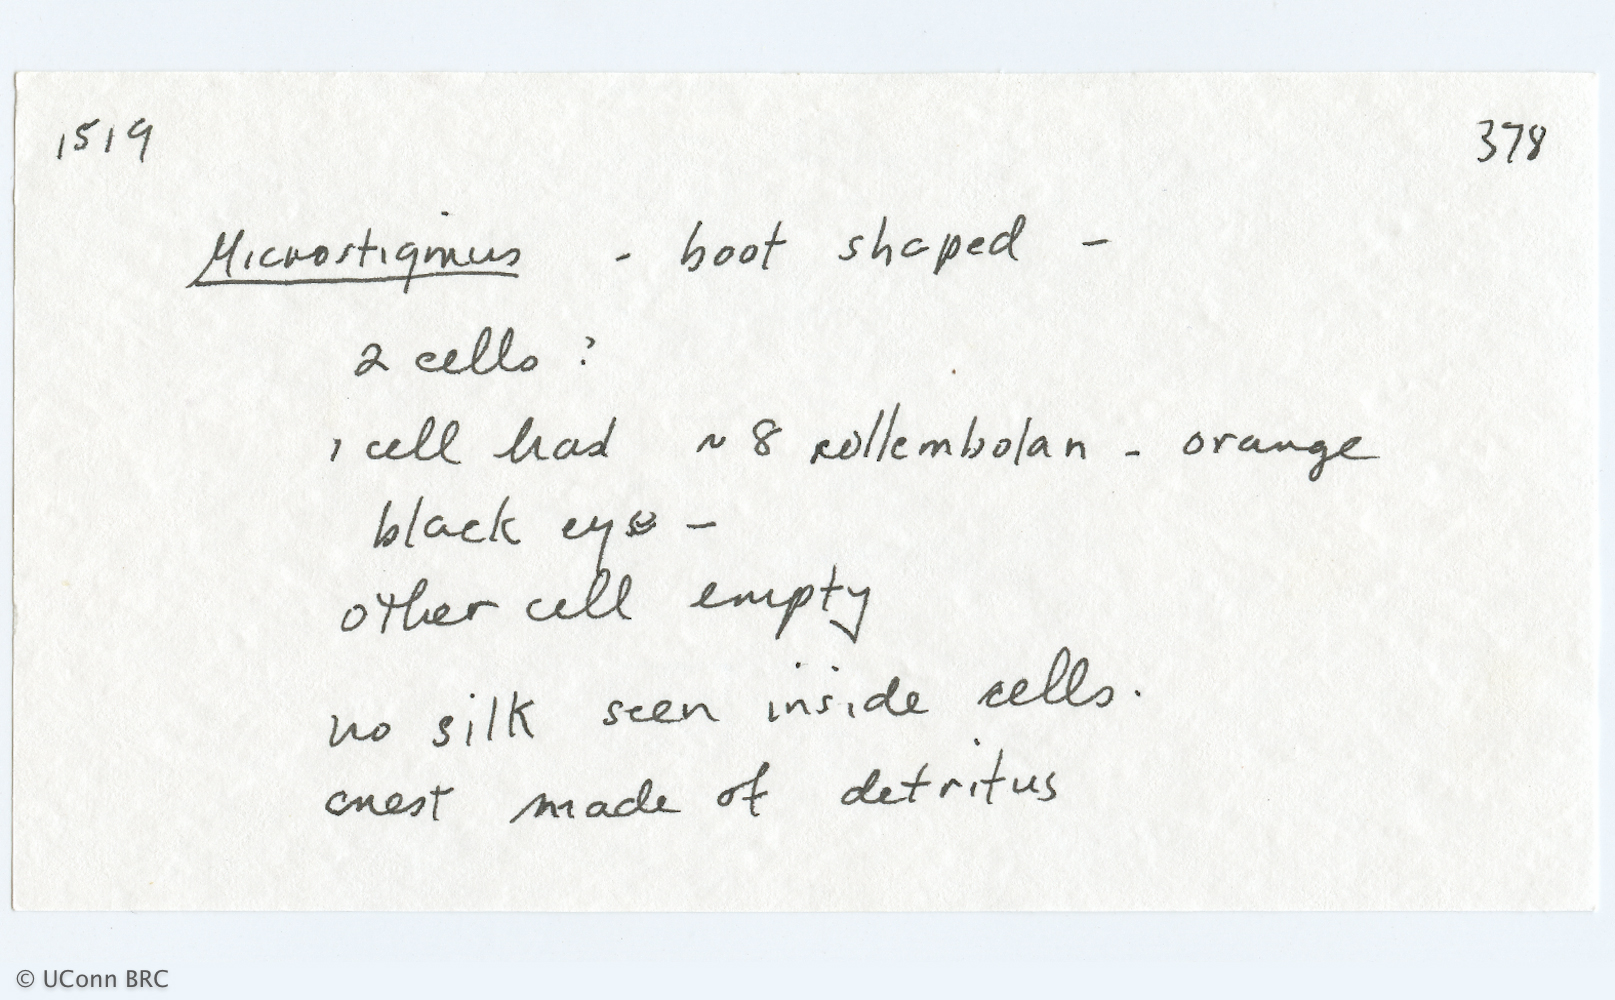 1519 378
Microstigmus - boot shaped -
2 cells ?
1 cell had ~ 8 collembolan - orange
black eyes -
other cell empty
no silk seen inside cells.
nest made of detritus
© UConn BRC